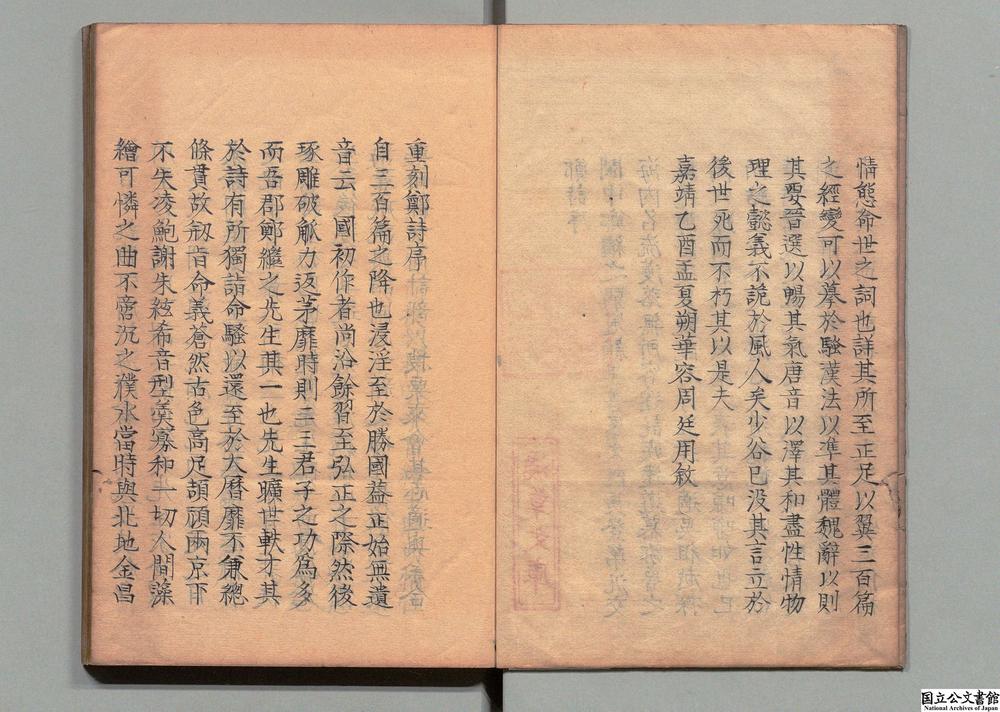 情態命世之詞也詳其所至正足以翼三百篇
之經變可以摹於騷漢法以準其體魏辭以則
其要晉選以暢其氣唐音以澤其和盡性情物
理之懿義不詭於風人矣少谷已没其言立於
後世死而不朽其以是夫
嘉靖乙酉孟夏朔華容周廷用敘
重刻鄭詩序
自三百篇之降也浸淫至於勝國益正始無遺
音云 國初作者尚沿餘習至弘正之際然後
琢雕破觚力返茅靡時則二三君子之功為多
而吾郡鄭繼之先生其一也先生曠世軼才其
於詩有所獨詣命騷以還至於大曆靡不兼總
條貫故初旨命義蒼然古色高足頡頏兩京下
不失凌鮑謝朱絃希音型羮寡和一切人間藻
繪可憐之曲不啻沉之濮水當時與北地金昌
国立公文書館
National Archives of Japan